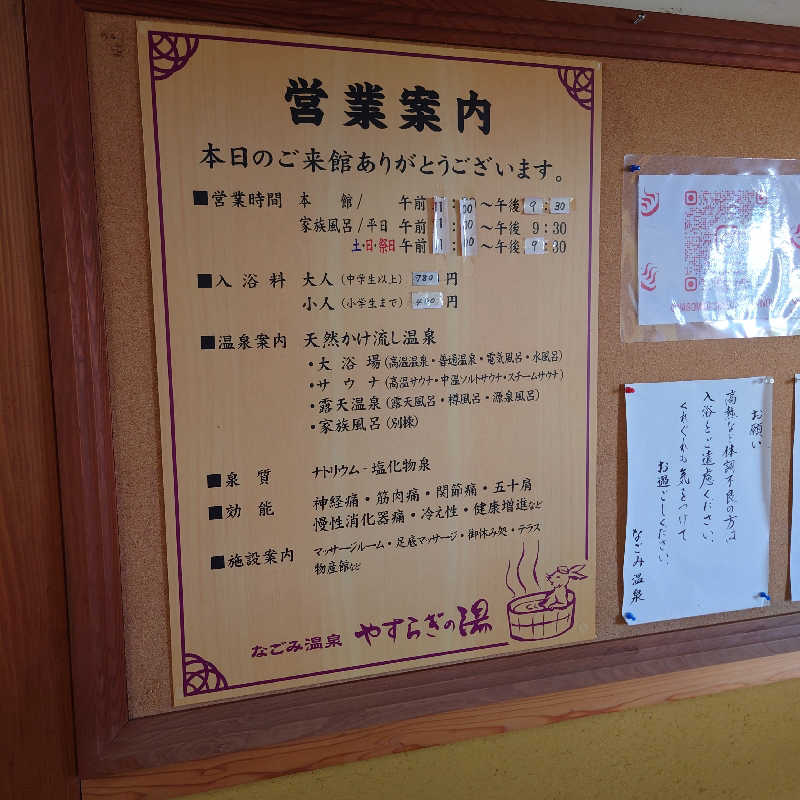 営業案内
本日のご来館ありがとうございます。
■営業時間 本 館/ 午前11:00～午後9:30
家族風呂/平日 午前11:30～午後9:30
土・日・祭日 午前11:00～午後9:30
■入浴料 大人(中学生以上)780円
小人(小学生まで)400円
■温泉案内 天然かけ流し温泉
・大浴場(高温温泉・普通温泉・電気風呂・水風呂)
・サウナ(高温サウナ・中温ソルトサウナ・スチームサウナ)
・露天温泉(露天風呂・樽風呂・源泉風呂)
・家族風呂(別棟)
■泉 質 ナトリウム-塩化物泉
■効 能 神経痛・筋肉痛・関節痛・五十肩
慢性消化器痛・冷え性・健康増進など
■施設案内 マッサージルーム・足底マッサージ・御休み処・テラス
物産館など
なごみ温泉 やすらぎの湯
お願い
高熱など体調不良の方は
入浴をご遠慮ください、
くれぐれも気をつけて
お過ごしください、
なごみ温泉